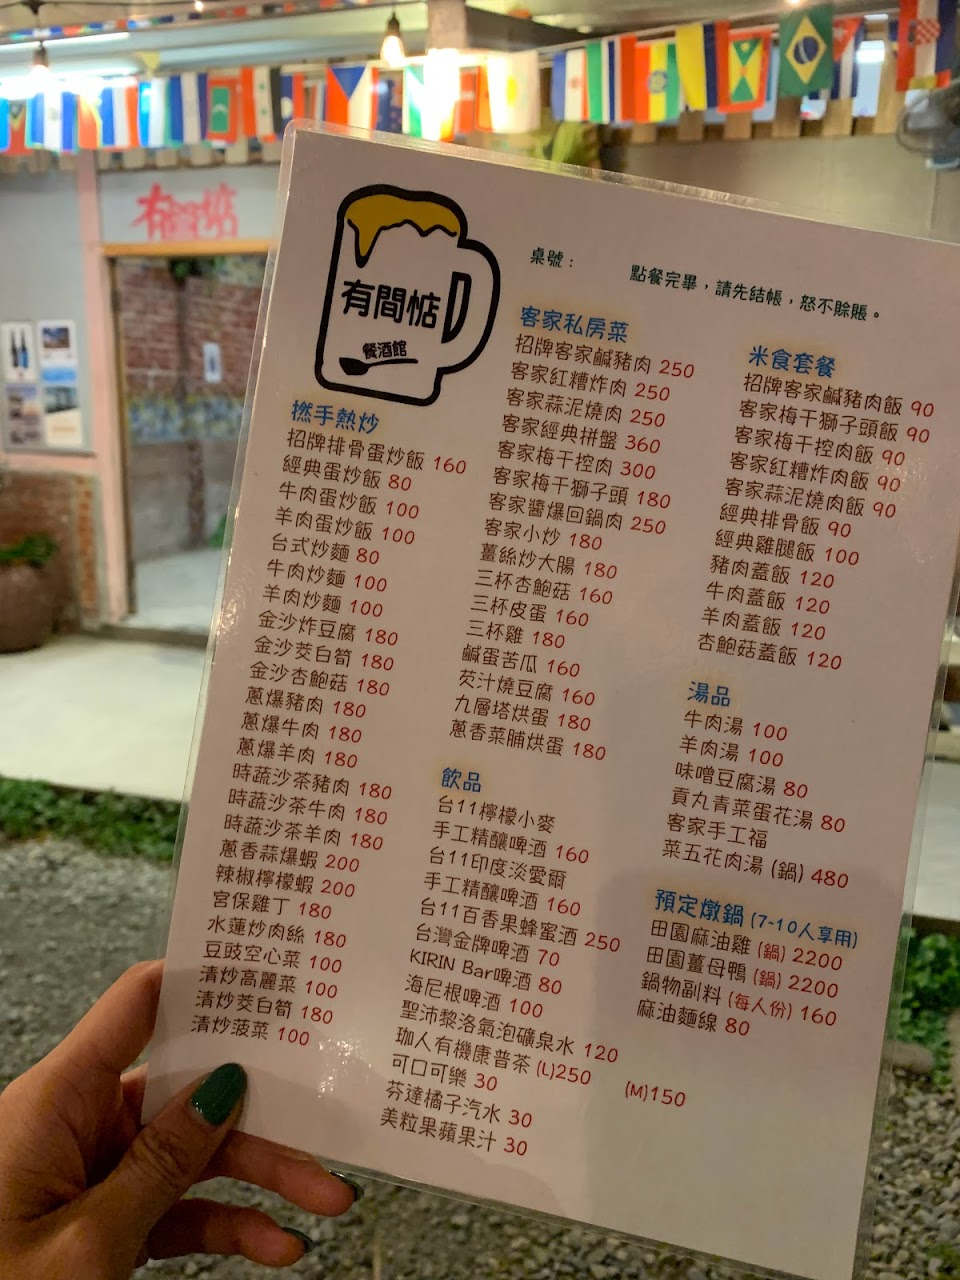 有間惦
有間惦
餐酒館
桌號：
點餐完畢，請先結帳，怒不賒賬。
撚手熱炒
招牌排骨蛋炒飯 160
經典蛋炒飯 80
牛肉蛋炒飯 100
羊肉蛋炒飯 100
台式炒麵 80
牛肉炒麵 100
羊肉炒麵 100
金沙炸豆腐 180
金沙茭白筍 180
金沙杏鮑菇 180
蔥爆豬肉 180
蔥爆牛肉 180
蔥爆羊肉 180
時蔬沙茶豬肉 180
時蔬沙茶牛肉 180
時蔬沙茶羊肉 180
蔥香蒜爆蝦 200
辣椒檸檬蝦 200
宮保雞丁 180
水蓮炒肉絲 180
豆豉空心菜 100
清炒高麗菜 100
清炒茭白筍 180
清炒菠菜 100
客家私房菜
招牌客家鹹豬肉 250
客家紅糟炸肉 250
客家蒜泥燒肉 250
客家經典拼盤 360
客家梅干控肉 300
客家梅干獅子頭 180
客家醬爆回鍋肉 250
客家小炒 180
薑絲炒大腸 180
三杯杏鮑菇 160
三杯皮蛋 160
三杯雞 180
鹹蛋苦瓜 160
芡汁燒豆腐 160
九層塔烘蛋 180
蔥香菜脯烘蛋 180
飲品
台11檸檬小麥
手工精釀啤酒 160
台11印度淡愛爾
手工精釀啤酒 160
台11百香果蜂蜜酒 250
台灣金牌啤酒 70
KIRIN Bar啤酒 80
海尼根啤酒 100
聖沛黎洛氣泡礦泉水 120
珈人有機康普茶 (L)250 (M)150
可口可樂 30
芬達橘子汽水 30
美粒果蘋果汁 30
米食套餐
招牌客家鹹豬肉飯 90
客家梅干獅子頭飯 90
客家梅干控肉飯 90
客家紅糟炸肉飯 90
客家蒜泥燒肉飯 90
經典排骨飯 90
經典雞腿飯 100
豬肉蓋飯 120
牛肉蓋飯 120
羊肉蓋飯 120
杏鮑菇蓋飯 120
湯品
牛肉湯 100
羊肉湯 100
味噌豆腐湯 80
貢丸青菜蛋花湯 80
客家手工福
菜五花肉湯 (鍋) 480
預定燉鍋 (7~10人享用)
田園麻油雞 (鍋) 2200
田園薑母鴨 (鍋) 2200
鍋物副料 (每人份) 160
麻油麵線 80